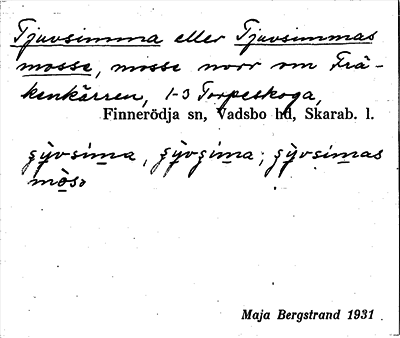 Tjuvsimma eller Tjuvsimmas
mosse, mosse norr om Frä-
kenkärren, 1-3 Torpeskoga,
Finnerödja sn, Vadsbo hd, Skarab. l.
mòsə
Maja Bergstrand 1931